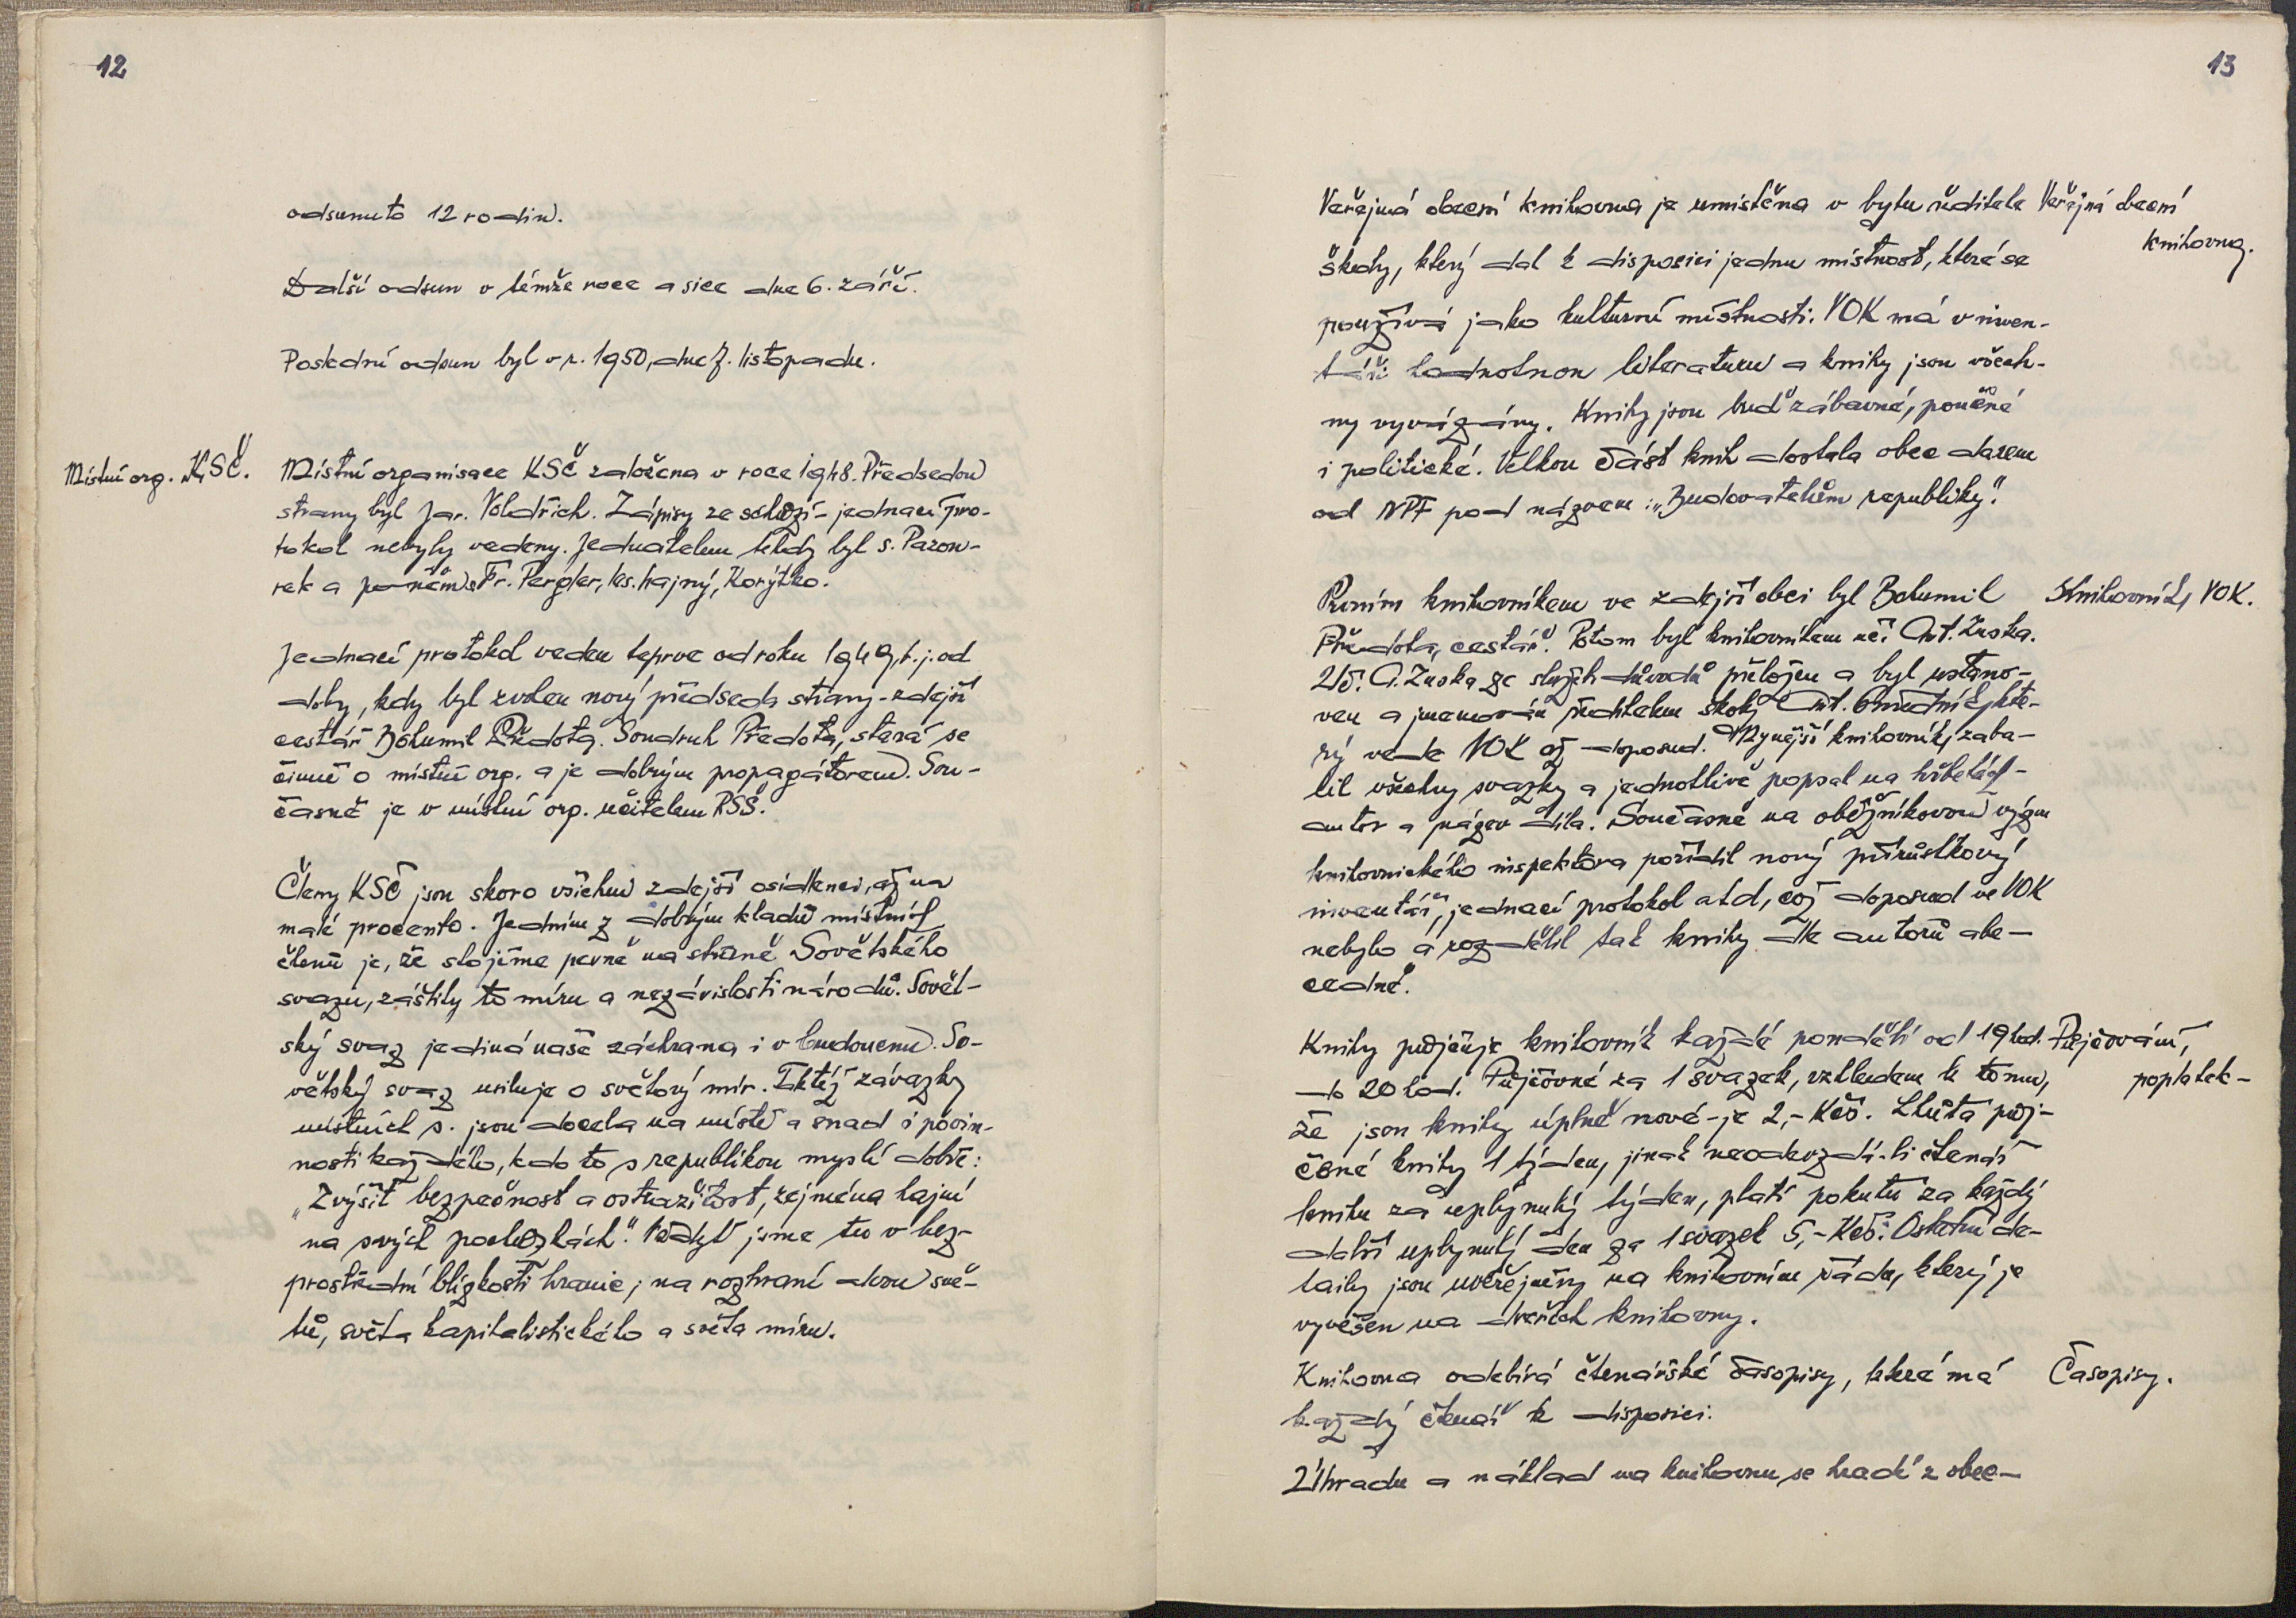 12
odsunuto 12 rodin.
Další odsun v témže roce a sice dne 6. září.
Poslední odsun byl v r. 1950, dne 7. listopadu.
Místní org. KSČ.
Místní organisace KSČ založena v roce 1948. Předsedou
strany byl Jar. Voldřich. Zápisy ze schůzí - jednací pro-
tokol nebyly vedeny. Jednatelem tehdy byl s. Pazou-
rek a po něm s. Fr. Pergler, les. hajný, Korýtko.
Jednací protokol veden teprve od roku 1949, t. j. od
doby, kdy byl zvolen nový předseda strany - zdejší
cestář Bohumil Předota. Soudruh Předota, stará se
čině o místní org. a je dobrým propagátorem. Sou-
časně je v místní org. učitelem RSŠ.
Členy KSČ jsou skoro všichni zdejší osídlenci, až na
malé procento. Jedním z dobrým kladů místních
členů je, že stojíme pevně na straně Sovětského
svazu, záštity to míru a nezávislosti národů. Sovět-
ský svaz jediná naše záchrana i v budoucnu. So-
větský svaz usiluje o světový mír. Taktéž závazky
místních s. jsou docela na místě a snad i povin-
ností každého, kdo to s republikou myslí dobře:
„Zvýšit bezpečnost a ostražitost, zejména hajní
na svých pochůzkách." Vždyť jsme tu v bez-
prostřední blízkosti hranic, na rozhraní dvou svě-
tů, světa kapitalistického a světa míru.
13
Veřejná obecní knihovna je umístěna v bytu ředitele
Veřejná obecní
knihovna.
školy, který dal k disposici jednu místnost, které se
používá jako kulturní místnosti. VOK má v inven-
táři hodnotnou literaturu a knihy jsou všech-
ny vyvázány. Knihy jsou buď zábavné, poučné
i politické. Velkou část knih dostala obec darem
od NPF pod názvem: „Budovatelům republiky."
Prvním knihovníkem ve zdejší obci byl Bohumil
Knihovník, VOK.
Předota, cestář. Potom byl knihovníkem uč. Ant. Zuska.
Uč. A. Zuska ze služ. důvodů přeložen a byl ustano-
ven a jmenován ředitelem školy Ant. kte-
rý vede VOK až doposud. Nynější knihovník, zaba-
lil všechny svazky a jednotlivě popsal na hřbetech -
autor a název díla. Současně na oběžníkovou výzvu
knihovnického inspektora pořídil nový přírůstkový
inventář, jednací protokol atd, což doposud ve VOK
nebylo a rozdělil tak knihy dle autorů abe-
cedně.
Knihy půjčuje knihovník každé pondělí od 19 hod.
Půjčování,
poplatek -
do 20 hod. Půjčovné za 1 svazek, vzhledem k tomu,
že jsou knihy úplně nové - je 2,- Kčs. Lhůta půj-
čené knihy 1 týden, jinak neodevzdá-li čtenář
knihu za uplynulý týden, platí pokutu za každý
další uplynulý den za 1 svazek 5,- Kčs. Ostatní de-
taily jsou uveřejněny na knihovním řádu, který je
vyvěšen na dveřích knihovny.
Knihovna odebírá čtenářské časopisy, které má
Časopisy.
každý čtenář k disposici.
Úhradu a náklad na knihovnu se hradí z obec-